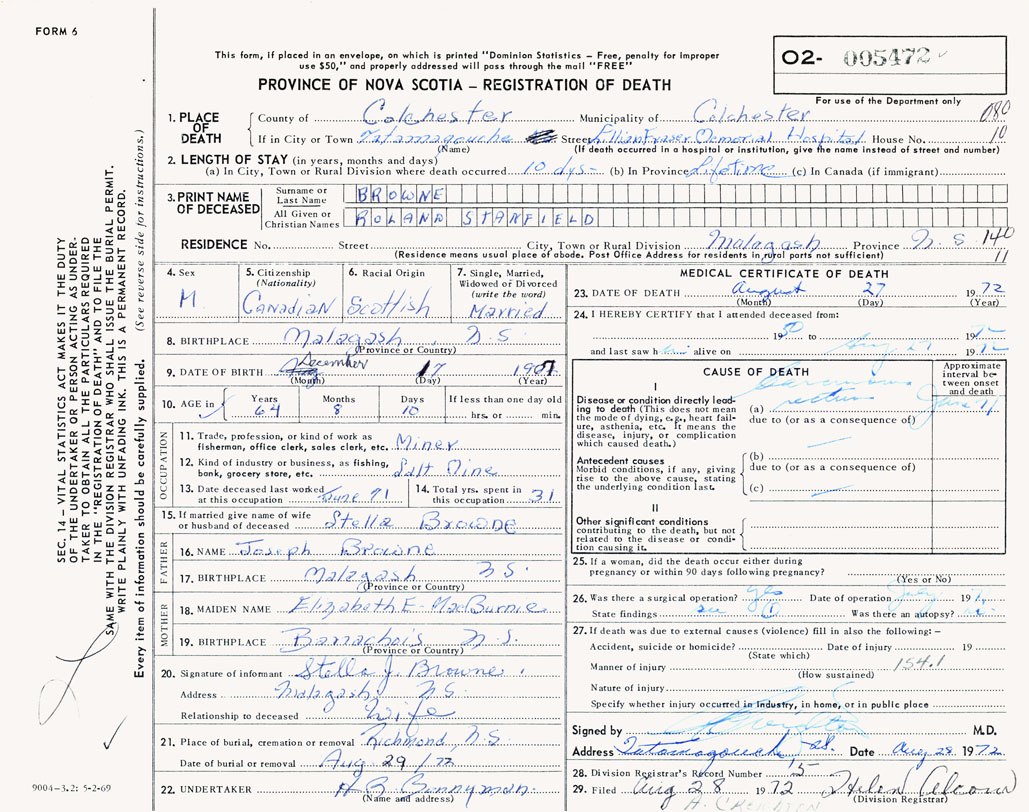 FORM 6
This form, if placed in an envelope, on which is printed "Dominion Statistics – Free, penalty for improper
use $50," and properly addressed will pass through the mail "FREE"
PROVINCE OF NOVA SCOTIA – REGISTRATION OF DEATH
O2- 005472
For use of the Department only
080
10
1. PLACE OF DEATH
County of Colchester Municipality of Colchester
If in City or Town Tatamagouche Street Lillian Fraser Memorial Hospital House No.
(Name) (If death occurred in a hospital or institution, give the name instead of street and number)
2. LENGTH OF STAY (in years, months and days)
(a) In City, Town or Rural Division where death occurred 10 dys- (b) In Province Lifetime (c) In Canada (if immigrant)
3. PRINT NAME OF DECEASED
Surname or Last Name BROWNE
All Given or Christian Names ROLAND STANFIELD
RESIDENCE No. Street City, Town or Rural Division Malagash Province N.S. 140
11
(Residence means usual place of abode. Post Office Address for residents in rural parts not sufficient)
4. Sex M.
5. Citizenship (Nationality) Canadian
6. Racial Origin Scottish
7. Single, Married, Widowed or Divorced (write the word) Married
8. BIRTHPLACE Malagash N.S.
(Province or Country)
9. DATE OF BIRTH December 17 1907
(Month) (Day) (Year)
10. AGE in Years 64 Months 8 Days 10 If less than one day old hrs. or min.
OCCUPATION
11. Trade, profession, or kind of work as fisherman, office clerk, sales clerk, etc. Miner
12. Kind of industry or business, as fishing, bank, grocery store, etc. Salt Mine
13. Date deceased last worked at this occupation June 71
14. Total yrs. spent in this occupation 31
15. If married give name of wife or husband of deceased Stella Browne
FATHER
16. NAME Joseph Browne
17. BIRTHPLACE Malagash N.S.
(Province or Country)
MOTHER
18. MAIDEN NAME Elizabeth E. MacBurnie
19. BIRTHPLACE Barrachois N.S.
(Province or Country)
20. Signature of informant Stella J. Browne
Address Malagash N.S.
Relationship to deceased Wife
21. Place of burial, cremation or removal Richmond, N.S.
Date of burial or removal Aug 29/72
22. UNDERTAKER H B Bonnyman
(Name and address)
MEDICAL CERTIFICATE OF DEATH
23. DATE OF DEATH August 27 1972
(Month) (Day) (Year)
24. I HEREBY CERTIFY that I attended deceased from:
1950 to 1972
and last saw h alive on Aug 27 1972
CAUSE OF DEATH
Approximate interval between onset and death
I
Disease or condition directly leading to death (This does not mean the mode of dying, e.g., heart failure, asthenia, etc. It means the disease, injury, or complication which caused death.)
(a) Carcinoma rectum June 71
due to (or as a consequence of)
Antecedent causes
Morbid conditions, if any, giving rise to the above cause, stating the underlying condition last.
(b)
due to (or as a consequence of)
(c)
II
Other significant conditions contributing to the death, but not related to the disease or condition causing it.
25. If a woman, did the death occur either during pregnancy or within 90 days following pregnancy?
(Yes or No)
26. Was there a surgical operation? yes Date of operation July 19
State findings see I Was there an autopsy?
27. If death was due to external causes (violence) fill in also the following: –
Accident, suicide or homicide? Date of injury 19
(State which)
Manner of injury 154.1
(How sustained)
Nature of injury
Specify whether injury occurred in industry, in home, or in public place
Signed by M.D.
Address Tatamagouche N.S. Date Aug 28 1972
28. Division Registrar's Record Number 15
29. Filed Aug 28 1972 Helen
(Division Registrar)
SEC. 14 – VITAL STATISTICS ACT MAKES IT THE DUTY
OF THE UNDERTAKER OR PERSON ACTING AS UNDER-
TAKER TO OBTAIN ALL THE PARTICULARS REQUIRED
IN THE "REGISTRATION OF DEATH" AND TO FILE THE
SAME WITH THE DIVISION REGISTRAR WHO SHALL ISSUE THE BURIAL PERMIT.
WRITE PLAINLY WITH UNFADING INK. THIS IS A PERMANENT RECORD.
Every item of information should be carefully supplied. (See reverse side for instructions.)
9004–3.2: 5-2-69